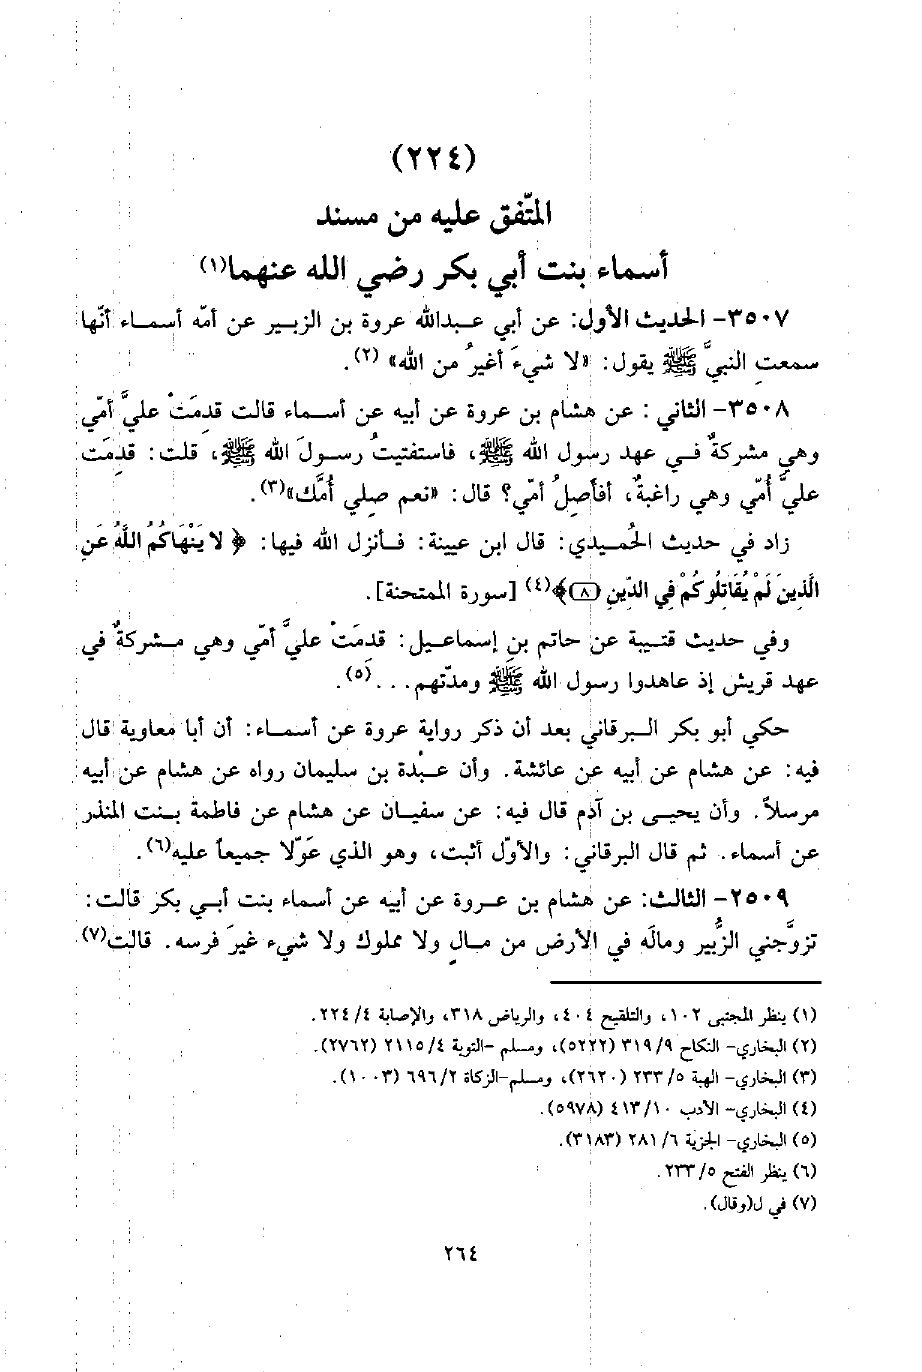 (٢٢٤)
المتّفق عليه من مسند
أسماء بنت أبي بكر رضي الله عنهما(١)
٣٥٠٧- الحديث الأول: عن أبي عبدالله عروة بن الزبير عن أمّه أسماء أنّها
سمعتِ النبيَّ ﷺ يقول: «لا شيءَ أغيرُ من الله» (٢).
٣٥٠٨- الثاني : عن هشام بن عروة عن أبيه عن أسماء قالت قدِمَتْ عليَّ أمّي
وهي مشركةٌ في عهد رسول الله ﷺ، فاستفتيتُ رسولَ الله ﷺ، قلت: قدِمَت
عليَّ أُمّي وهي راغبةٌ، أفأَصِلُ أمّي؟ قال: «نعم صلي أُمَّك»(٣).
زاد في حديث الحُميدي: قال ابن عيينة: فأنزل الله فيها: ﴿ لا يَنْهَاكُمُ اللَّهُ عَنِ
الَّذِينَ لَمْ يُقَاتِلُوكُمْ فِي الدِّينِ (٨)﴾(٤) [سورة الممتحنة].
وفي حديث قتيبة عن حاتم بنِ إسماعيل: قدمَتْ عليَّ أمّي وهي مشركةٌ في
عهد قريش إذ عاهدوا رسول الله ﷺ ومدّتهم...(٥).
حكي أبو بكر البرقاني بعد أن ذكر رواية عروة عن أسماء: أن أبا معاوية قال
فيه: عن هشام عن أبيه عن عائشة. وأن عبْدة بن سليمان رواه عن هشام عن أبيه
مرسلاً. وأن يحيى بن آدم قال فيه: عن سفيان عن هشام عن فاطمة بنت المنذر
عن أسماء. ثم قال البرقاني: والأوّل أثبت، وهو الذي عَوّلا جميعاً عليه(٦).
٢٥٠٩- الثالث: عن هشام بن عروة عن أبيه عن أسماء بنت أبي بكر قالت:
تزوَّجني الزُّبير ومالَه في الأرض من مالٍ ولا مملوك ولا شيء غيرَ فرسه. قالت(٧)
(١) ينظر المجتبى ١٠٢، والتلقيح ٤٠٤، والرياض ٣١٨، والإصابة ٤/ ٢٢٤.
(٢) البخاري- النكاح ٩/ ٣١٩ (٥٢٢٢)، ومسلم -التوبة ٤/ ٢١١٥ (٢٧٦٢).
(٣) البخاري- الهبة ٥/ ٢٣٣ (٢٦٢٠)، ومسلم-الزكاة ٢/ ٦٩٦ (١٠٠٣).
(٤) البخاري- الأدب ١٠/ ٤١٣ (٥٩٧٨).
(٥) البخاري- الجزية ٦/ ٢٨١ (٣١٨٣).
(٦) ينظر الفتح ٥/ ٢٣٣.
(٧) في ل(وقال).
٢٦٤